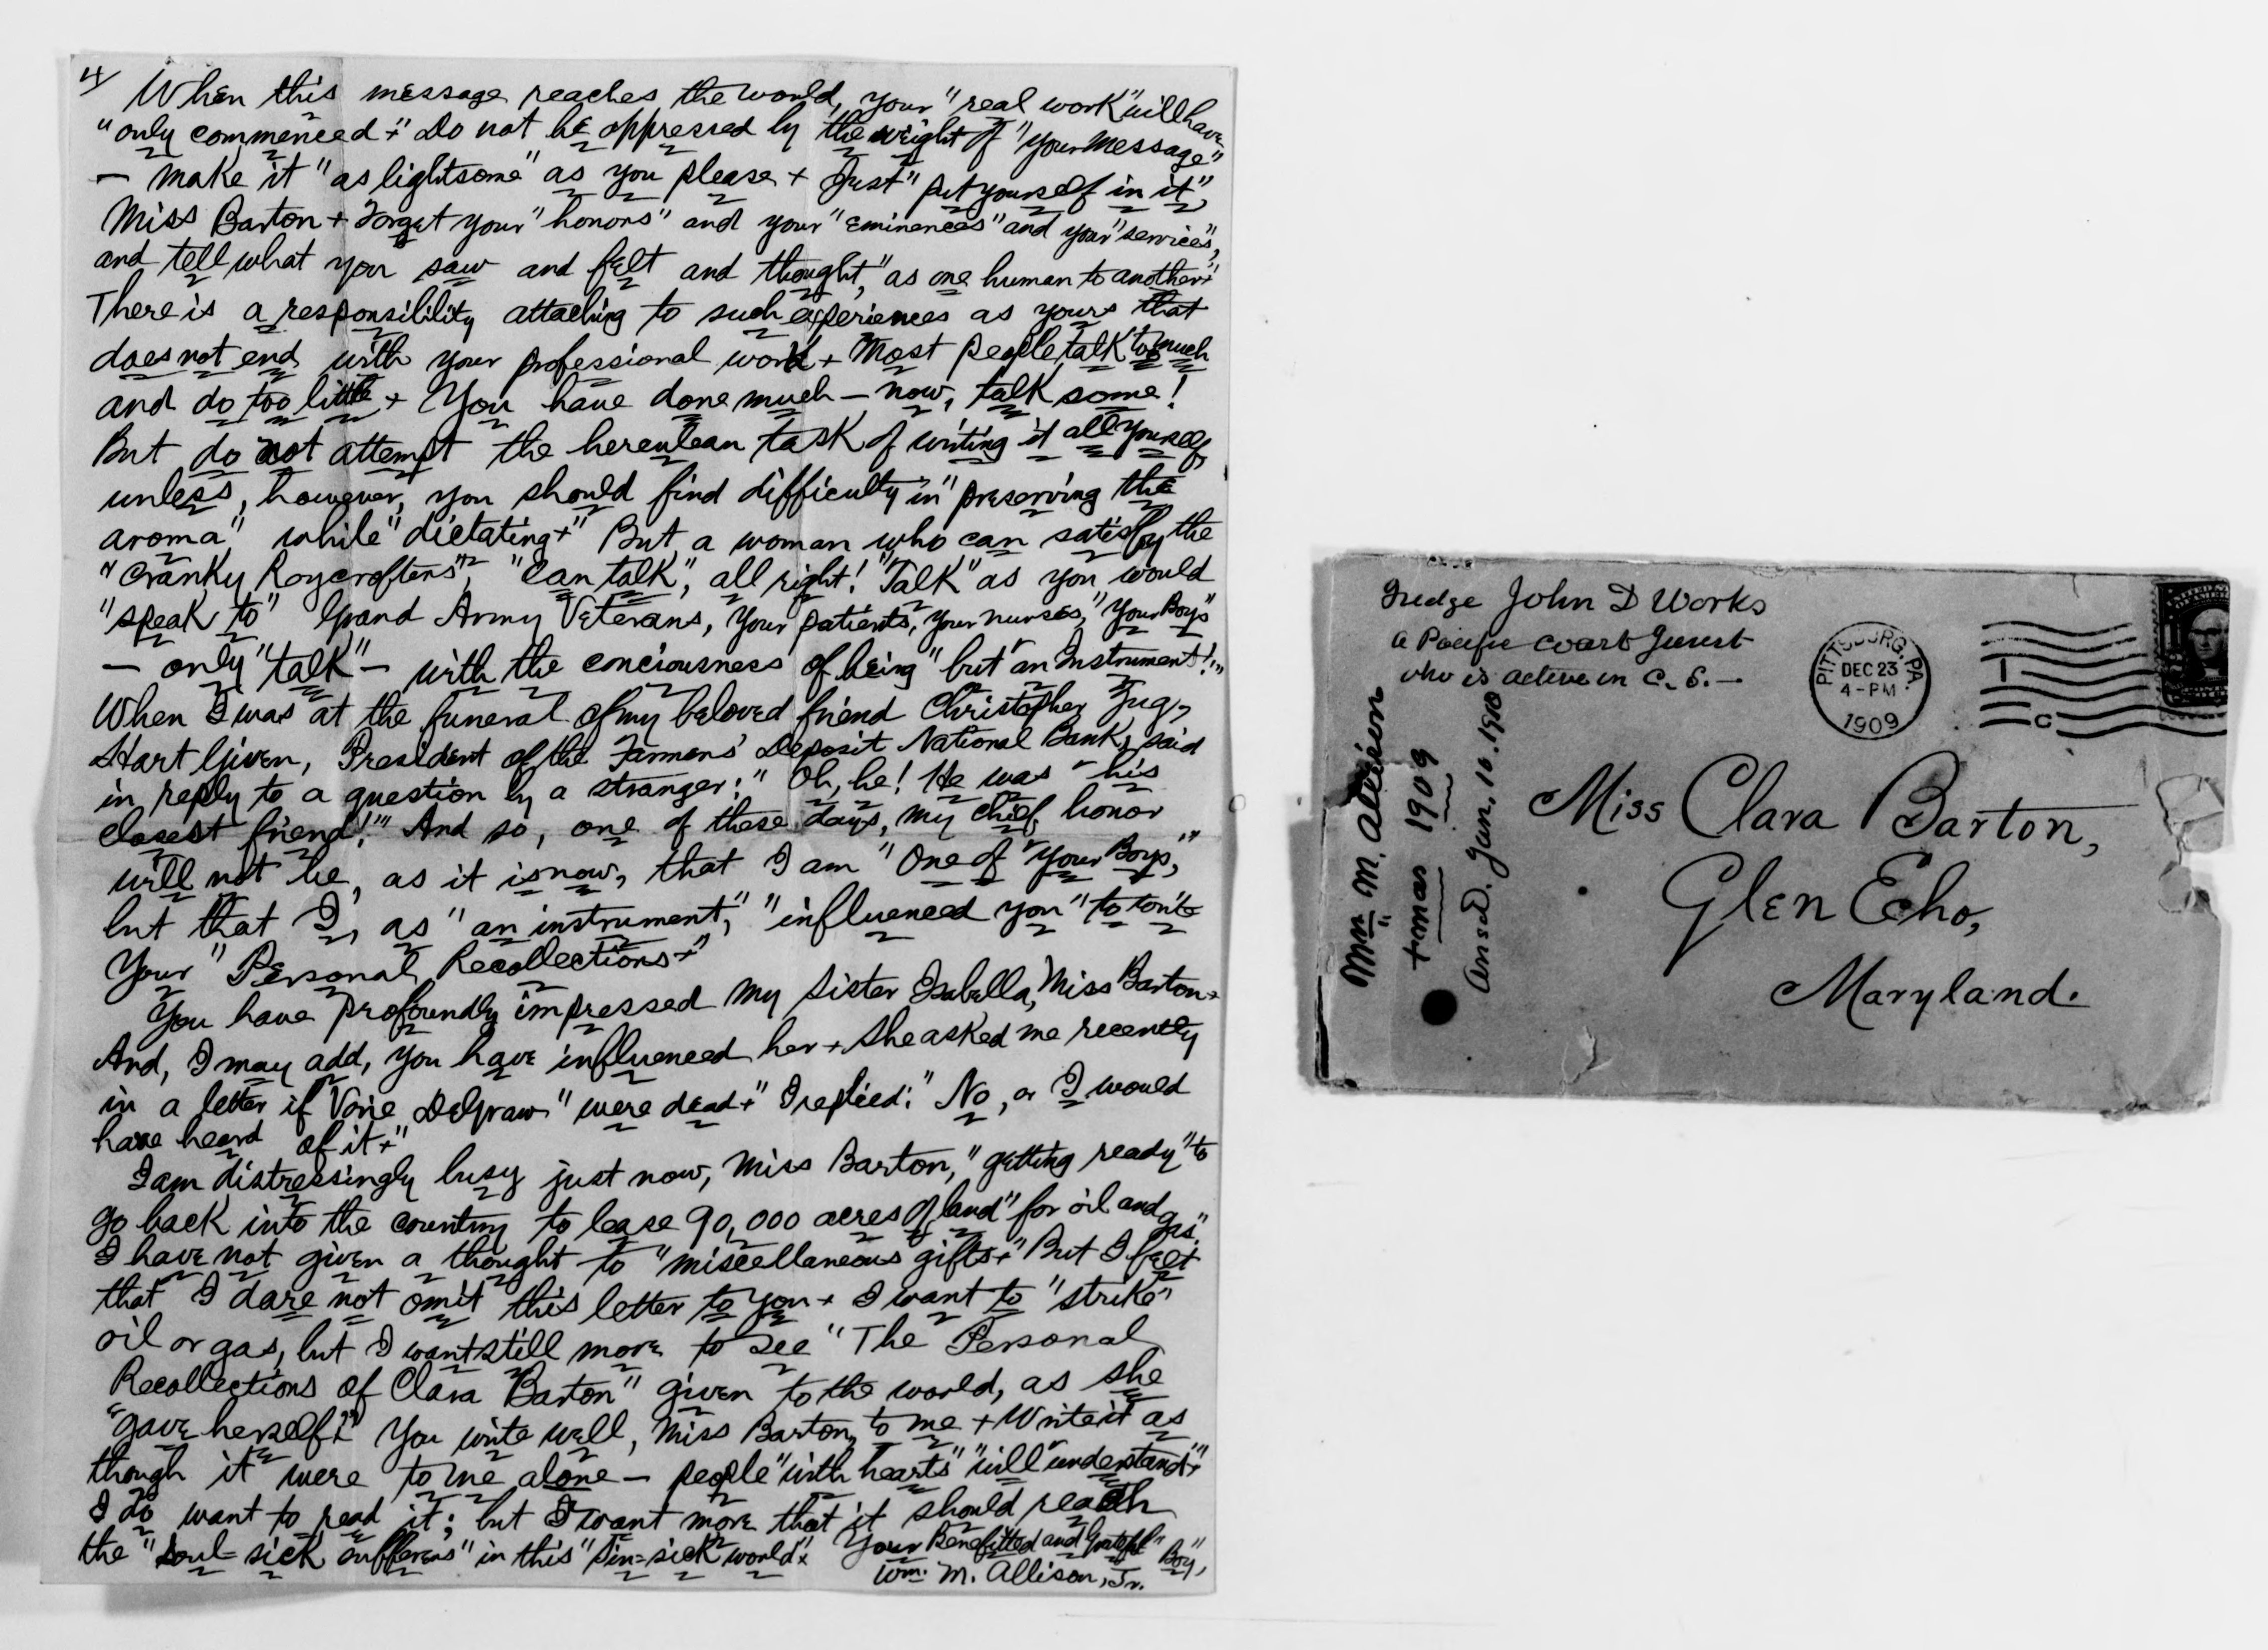 4/
When this message reaches the world, your "real work" will have
"only commenced +" Do not be oppressed by the weight of "your message"
— make it "as lightsome" as you please + Just "put yourself in it",
Miss Barton + Forget your "honors" and your "eminences" and your "services",
and tell what you saw and felt and thought, "as one human to another +"
There is a responsibility attaching to such experiences as yours that
does not end with your professional work + Most people talk too much
and do too little + You have done much — now, talk some!
But do not attempt the herculean task of writing it all yourself,
unless, however, you should find difficulty in "preserving the
aroma" while "dictating +" But a woman who can satisfy the
"cranky Roycrofters", "can talk", all right! "Talk" as you would
"speak to" Grand Army Veterans, your patients, your nurses, "Your Boys"
— only "talk" — with the conciousness of being "but an Instrument!"
When I was at the funeral of my beloved friend Christopher Zug,
Hart Given, President of the Farmers' Deposit National Bank, said
in reply to a question by a stranger: "Oh, he! He was "his
closest friend!"" And so, one of these days, my chief honor
will not be, as it is now, that I am "One of "Your Boys","
but that I, as "an instrument," "influenced you" to write
Your "Personal Recollections +"
You have profoundly impressed my sister Isabella, Miss Barton +
And, I may add, you have influenced her + She asked me recently
in a letter if Vorie DeGraw "were dead +" I replied: "No, or I would
have heard of it +"
I am distressingly busy just now, Miss Barton, "getting ready" to
go back into the country to lease 90,000 acres of land "for oil and gas".
I have not given a thought to "miscellaneous gifts +" But I felt
that I dare not omit this letter to you + I want to "strike"
oil or gas, but I want still more to see "The Personal
Recollections of Clara Barton" given to the world, as she
"gave herself +" You write well, Miss Barton, to me + Write it as
though it were to me alone — people "with hearts" "will "understand +"
I do want to read it; but I want more that it should reach
the "soul-sick sufferers" in this "sin-sick world" +
Your Benefitted and Grateful "Boy",
Wm. M. Allison, Jr.
Judge John D Works
a Pacific coast Jurist
who is active in C. S. —
PITTSBURG, PA.
DEC 23
4-PM
1909
C
Wm M. Allison
+mas 1909
Ansd. Jan. 16. 1910
Miss Clara Barton,
Glen Echo,
Maryland.